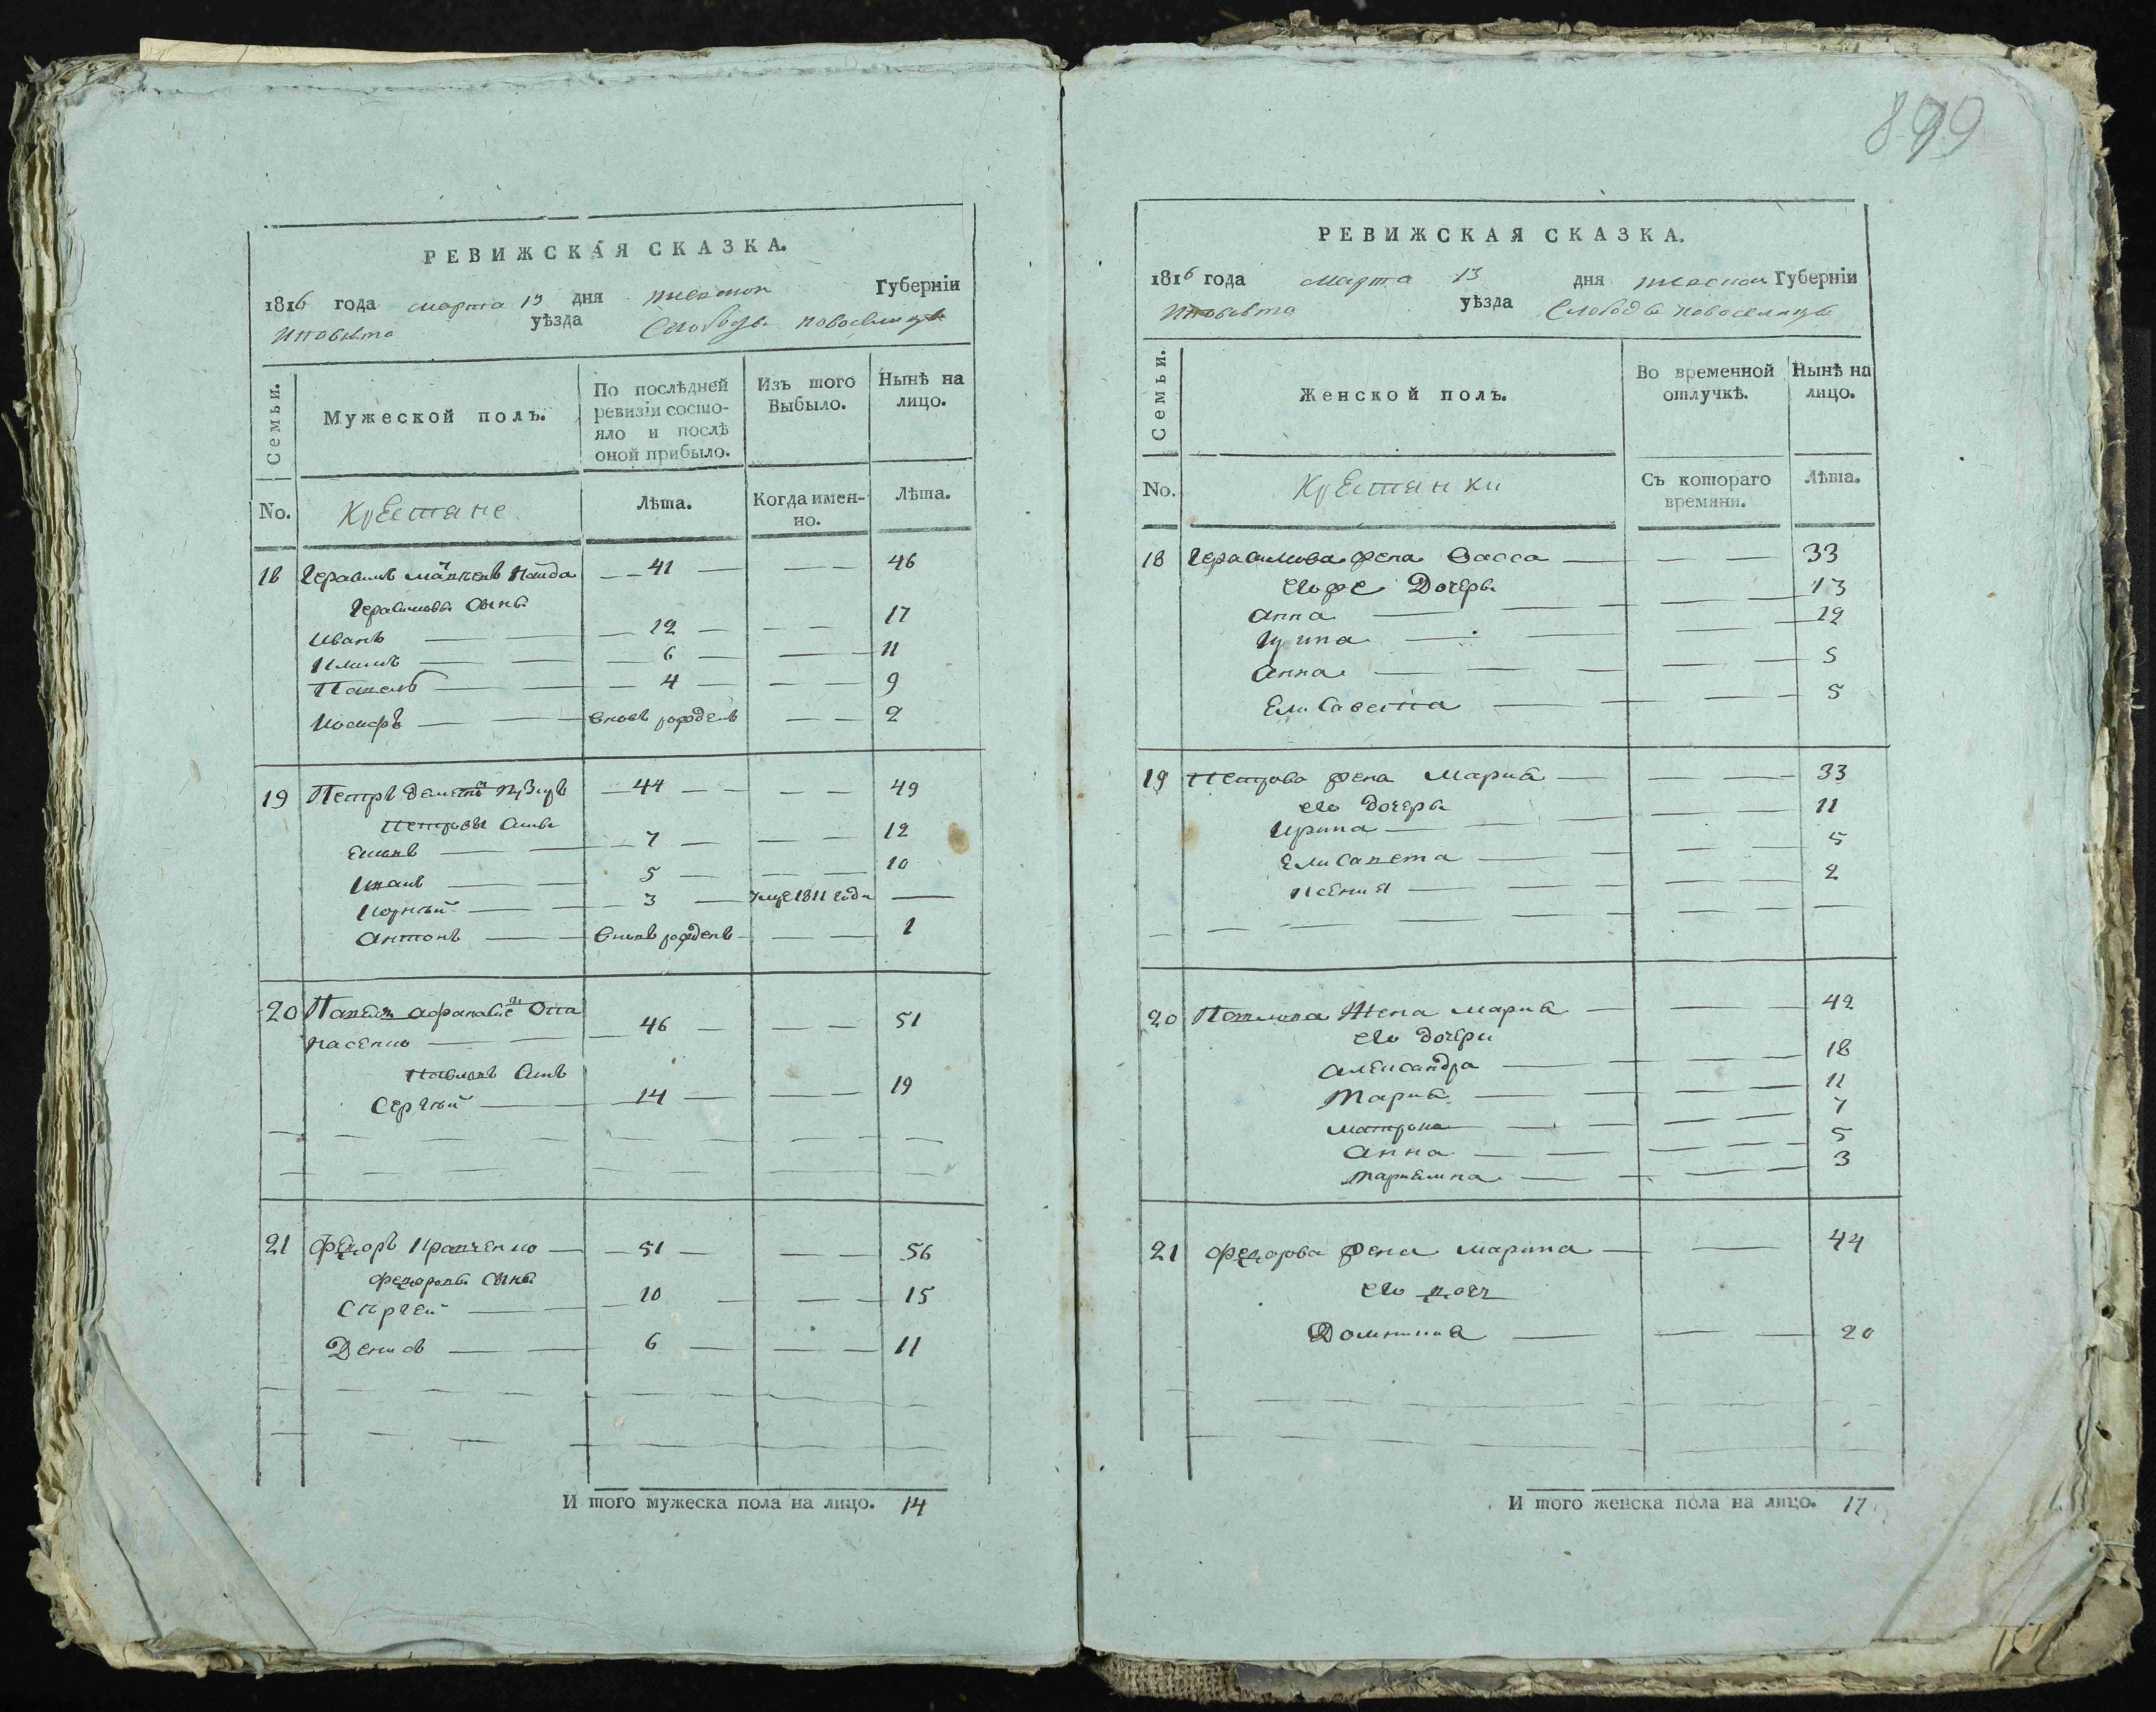 899
РЕВИЖСКАЯ СКАЗКА.
1816 года марта 13 дня Киевской Губерніи
и повѣта уѣзда Слободы Новоселицы
Семьи.
Мужеской полъ.
По послѣдней ревизіи состояло и послѣ оной прибыло.
Изъ того Выбыло.
Нынѣ на лицо.
No.
Крестяне
Лѣта.
Когда именно.
Лѣта.
18 Герасимъ 41 46
Герасимовы сыны
Иванъ 12 17
Климъ 6 11
Павелъ 4 9
Иосифъ вновь рожденъ 2
19 Петръ 44 49
Петровы сыны
7 12
Иванъ 5 10
Корнѣй 3 умре 1811 года
Антонъ вновь рожденъ 1
20 Павелъ Афанасіевъ Ота
пасенко 46 51
Павловъ сынъ
Сергѣй 14 19
21 Федоръ Кравченко 51 56
Федоровы сыны
Сергей 10 15
Денисъ 6 11
И того мужеска пола на лицо. 14
РЕВИЖСКАЯ СКАЗКА.
1816 года марта 13 дня Киевской Губерніи
и повѣта уѣзда Слободы Новоселицы
Семьи.
Женской полъ.
Во временной отлучкѣ.
Нынѣ на лицо.
No.
Крестянки
Съ котораго времяни.
Лѣта.
18 Герасимова жена Васса 33
Его же Дочеры 13
Анна 12
Ирина 5
Анна 5
Елисавета
19 Петрова жена Мария 33
его дочеры 11
Ирина 5
Елисавета 2
Ксения
20 Павлова Жена Мария 42
его дочери
Александра 18
Мария 11
Матрона 7
Анна 5
Мариамна 3
21 Федорова жена Марина 44
его доч
Домникия 20
И того женска пола на лицо. 17